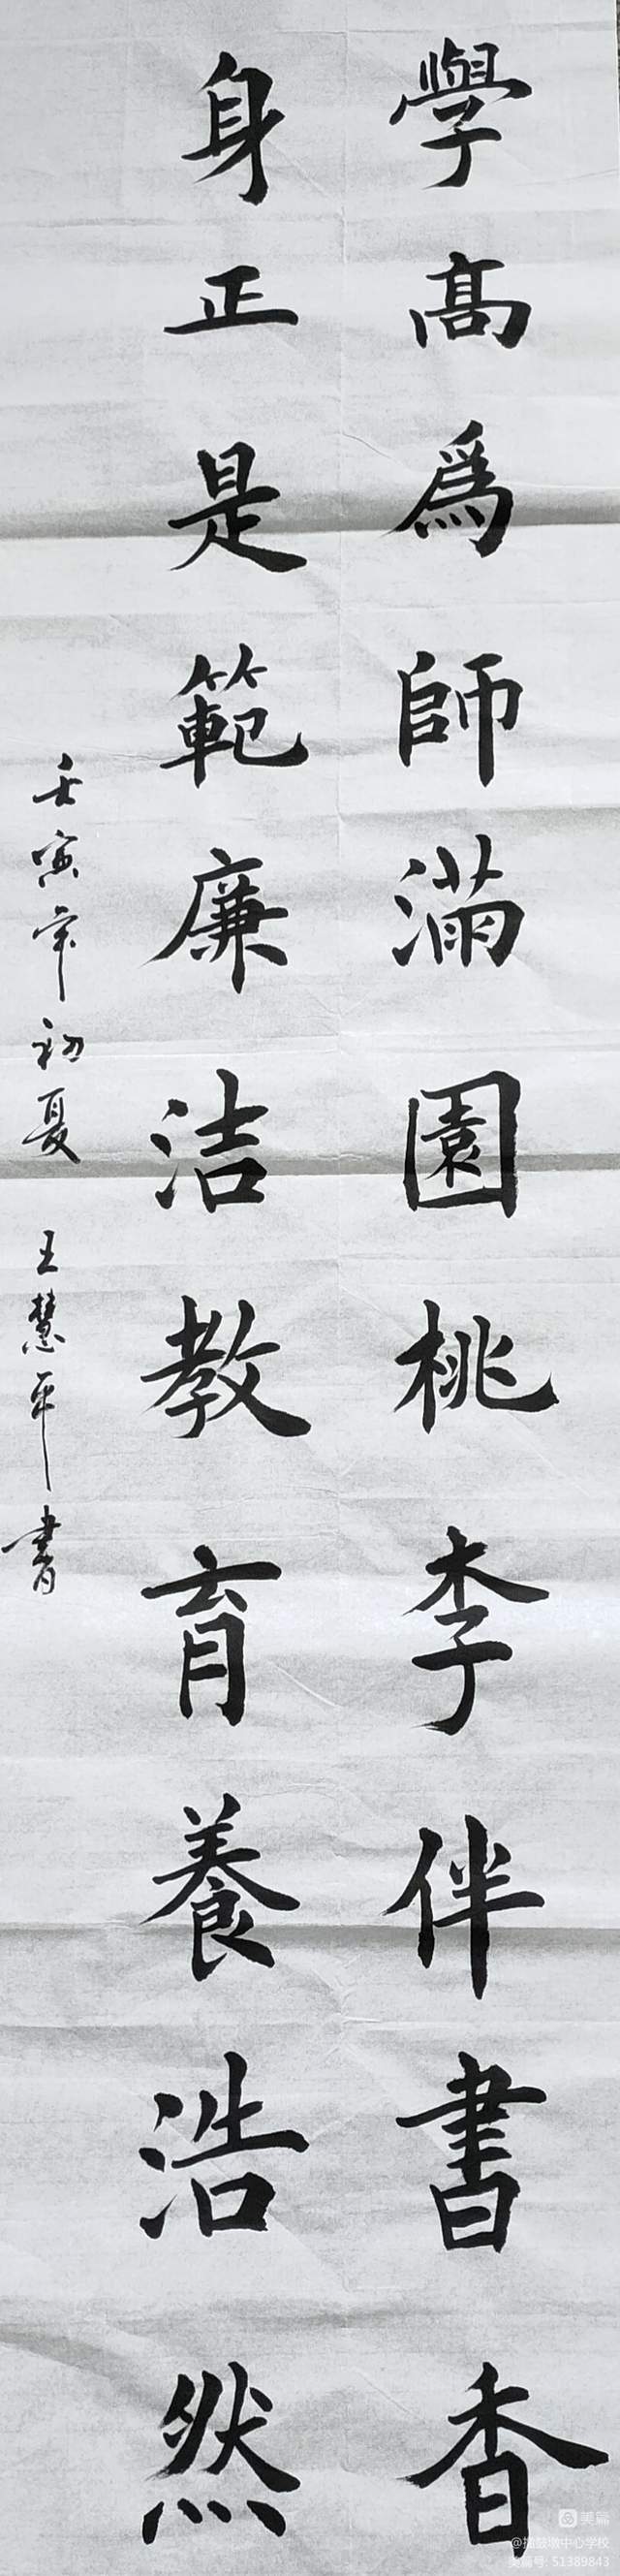 學高爲師滿園桃李伴書香
身正是範廉洁教育養浩然
壬寅年初夏 王慧平書
美篇
美篇号: 51389843